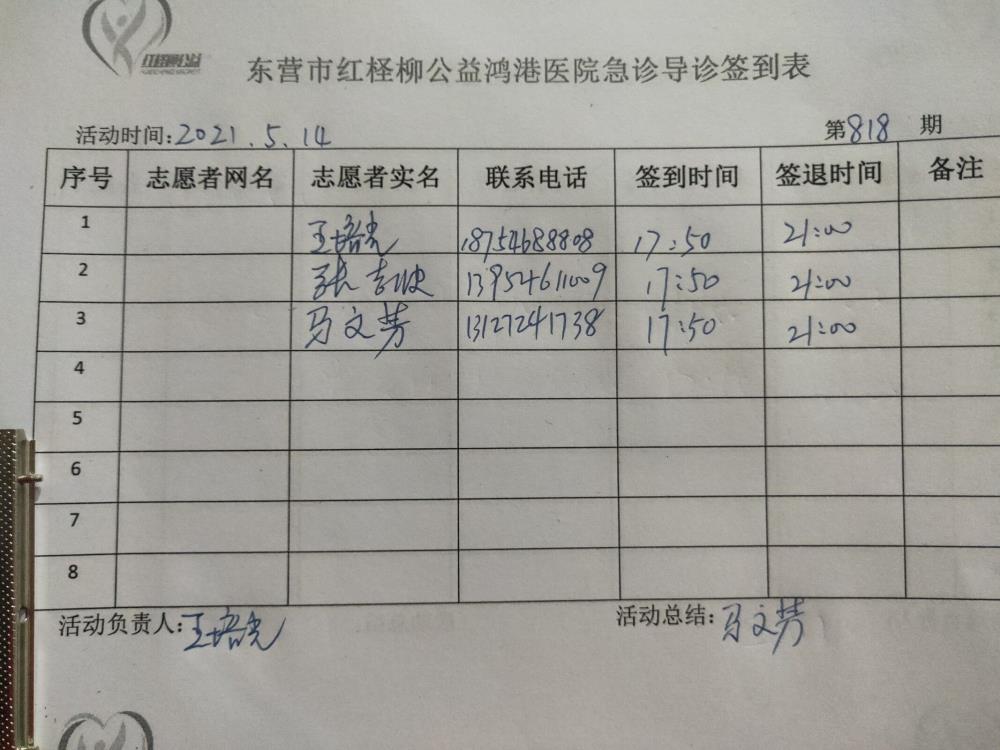 红柽柳公益
东营市红柽柳公益鸿港医院急诊导诊签到表
活动时间:2021.5.14 第818期
序号 志愿者网名 志愿者实名 联系电话 签到时间 签退时间 备注
1 王培光 18754688808 17:50 21:00
2 张 13954611009 17:50 21:00
3 马文芳 13127241738 17:50 21:00
4
5
6
7
8
活动负责人:王培光 活动总结:马文芳